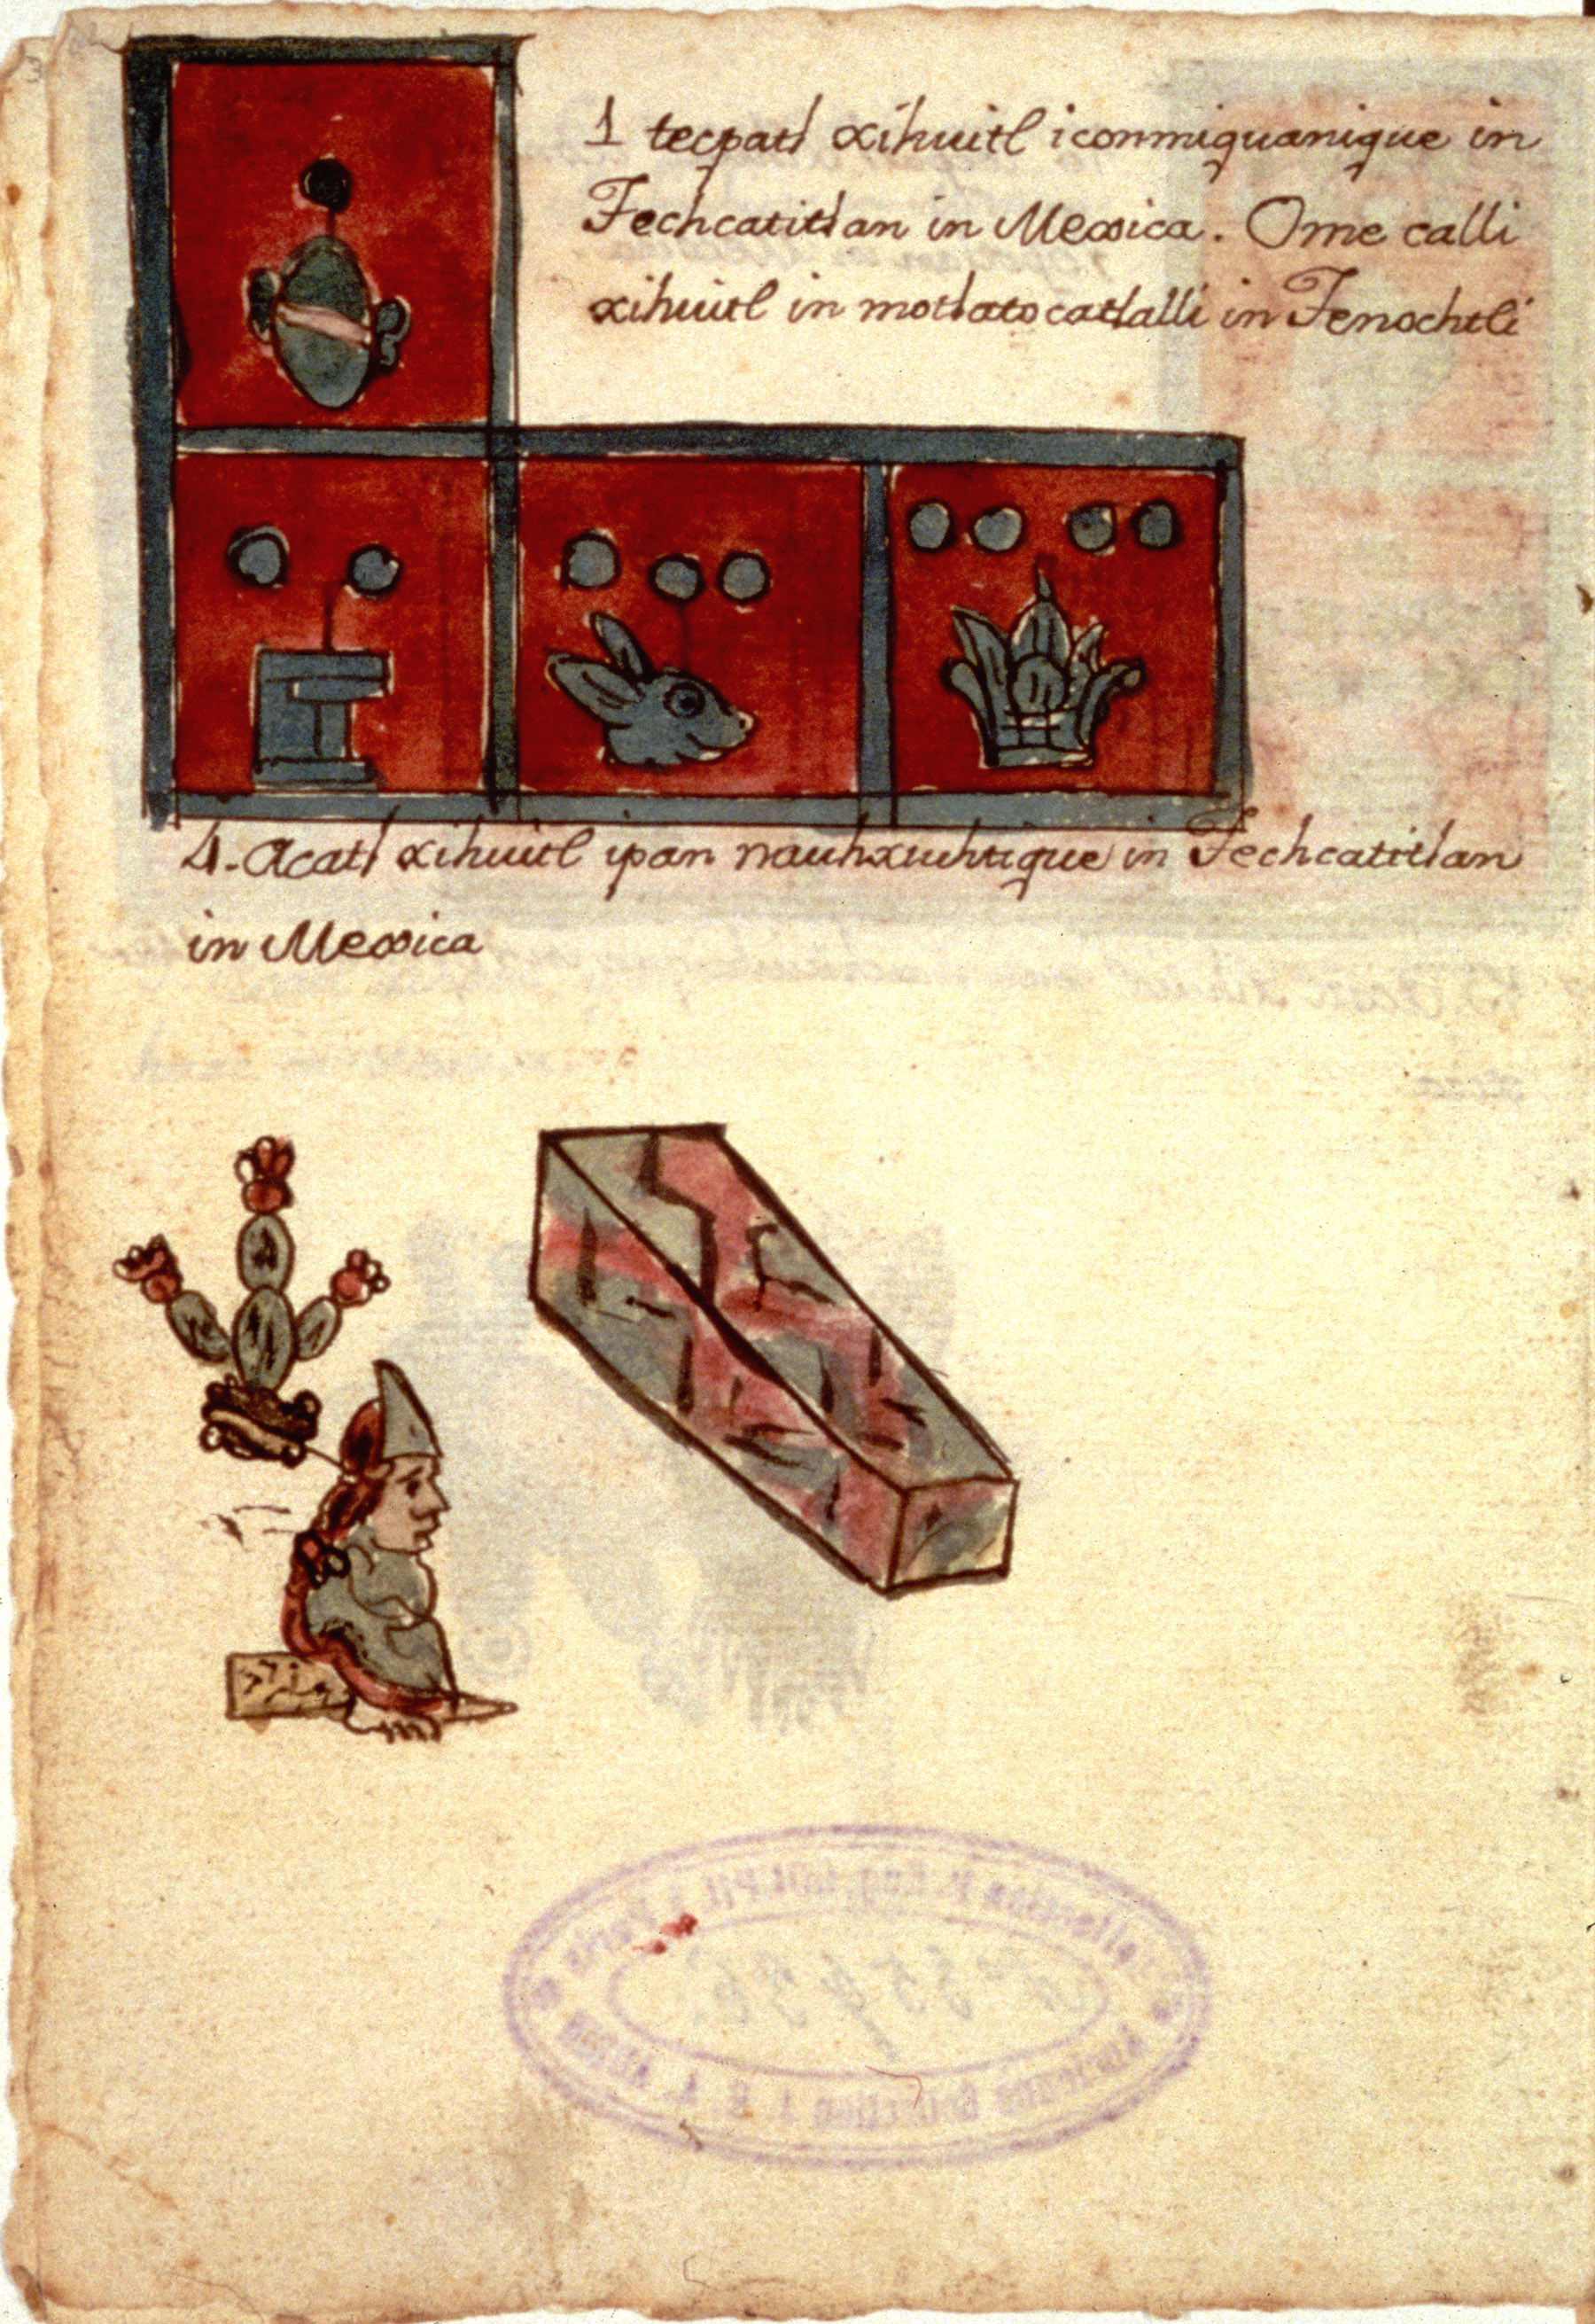 1 tecpatl xihuitl iconmiquanique in
Techcatitlan in Mexica. Ome calli
xihuitl in motlatocatlalli in Tenochtli
4. Acatl xihuitl ipan nauhxiuhtique in Techcatitlan
in Mexica